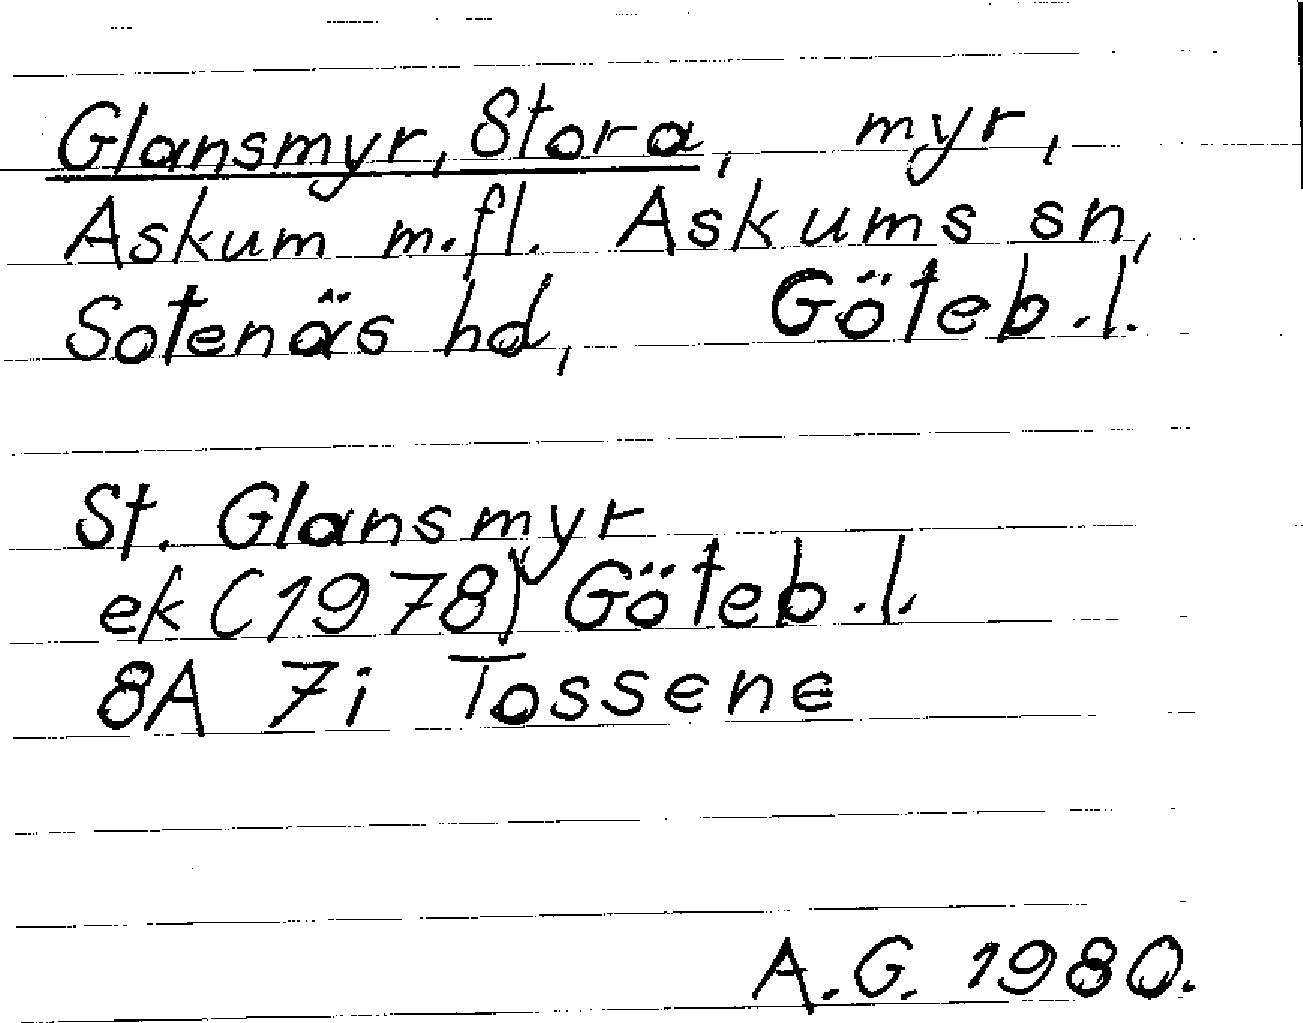 Glansmyr, Stora, myr,
Askum m.fl. Askums sn,
Sotenäs hd, Göteb.l.
St. Glansmyr
ek (1978) Göteb.l.
8A 7i Tossene
A.G. 1980.